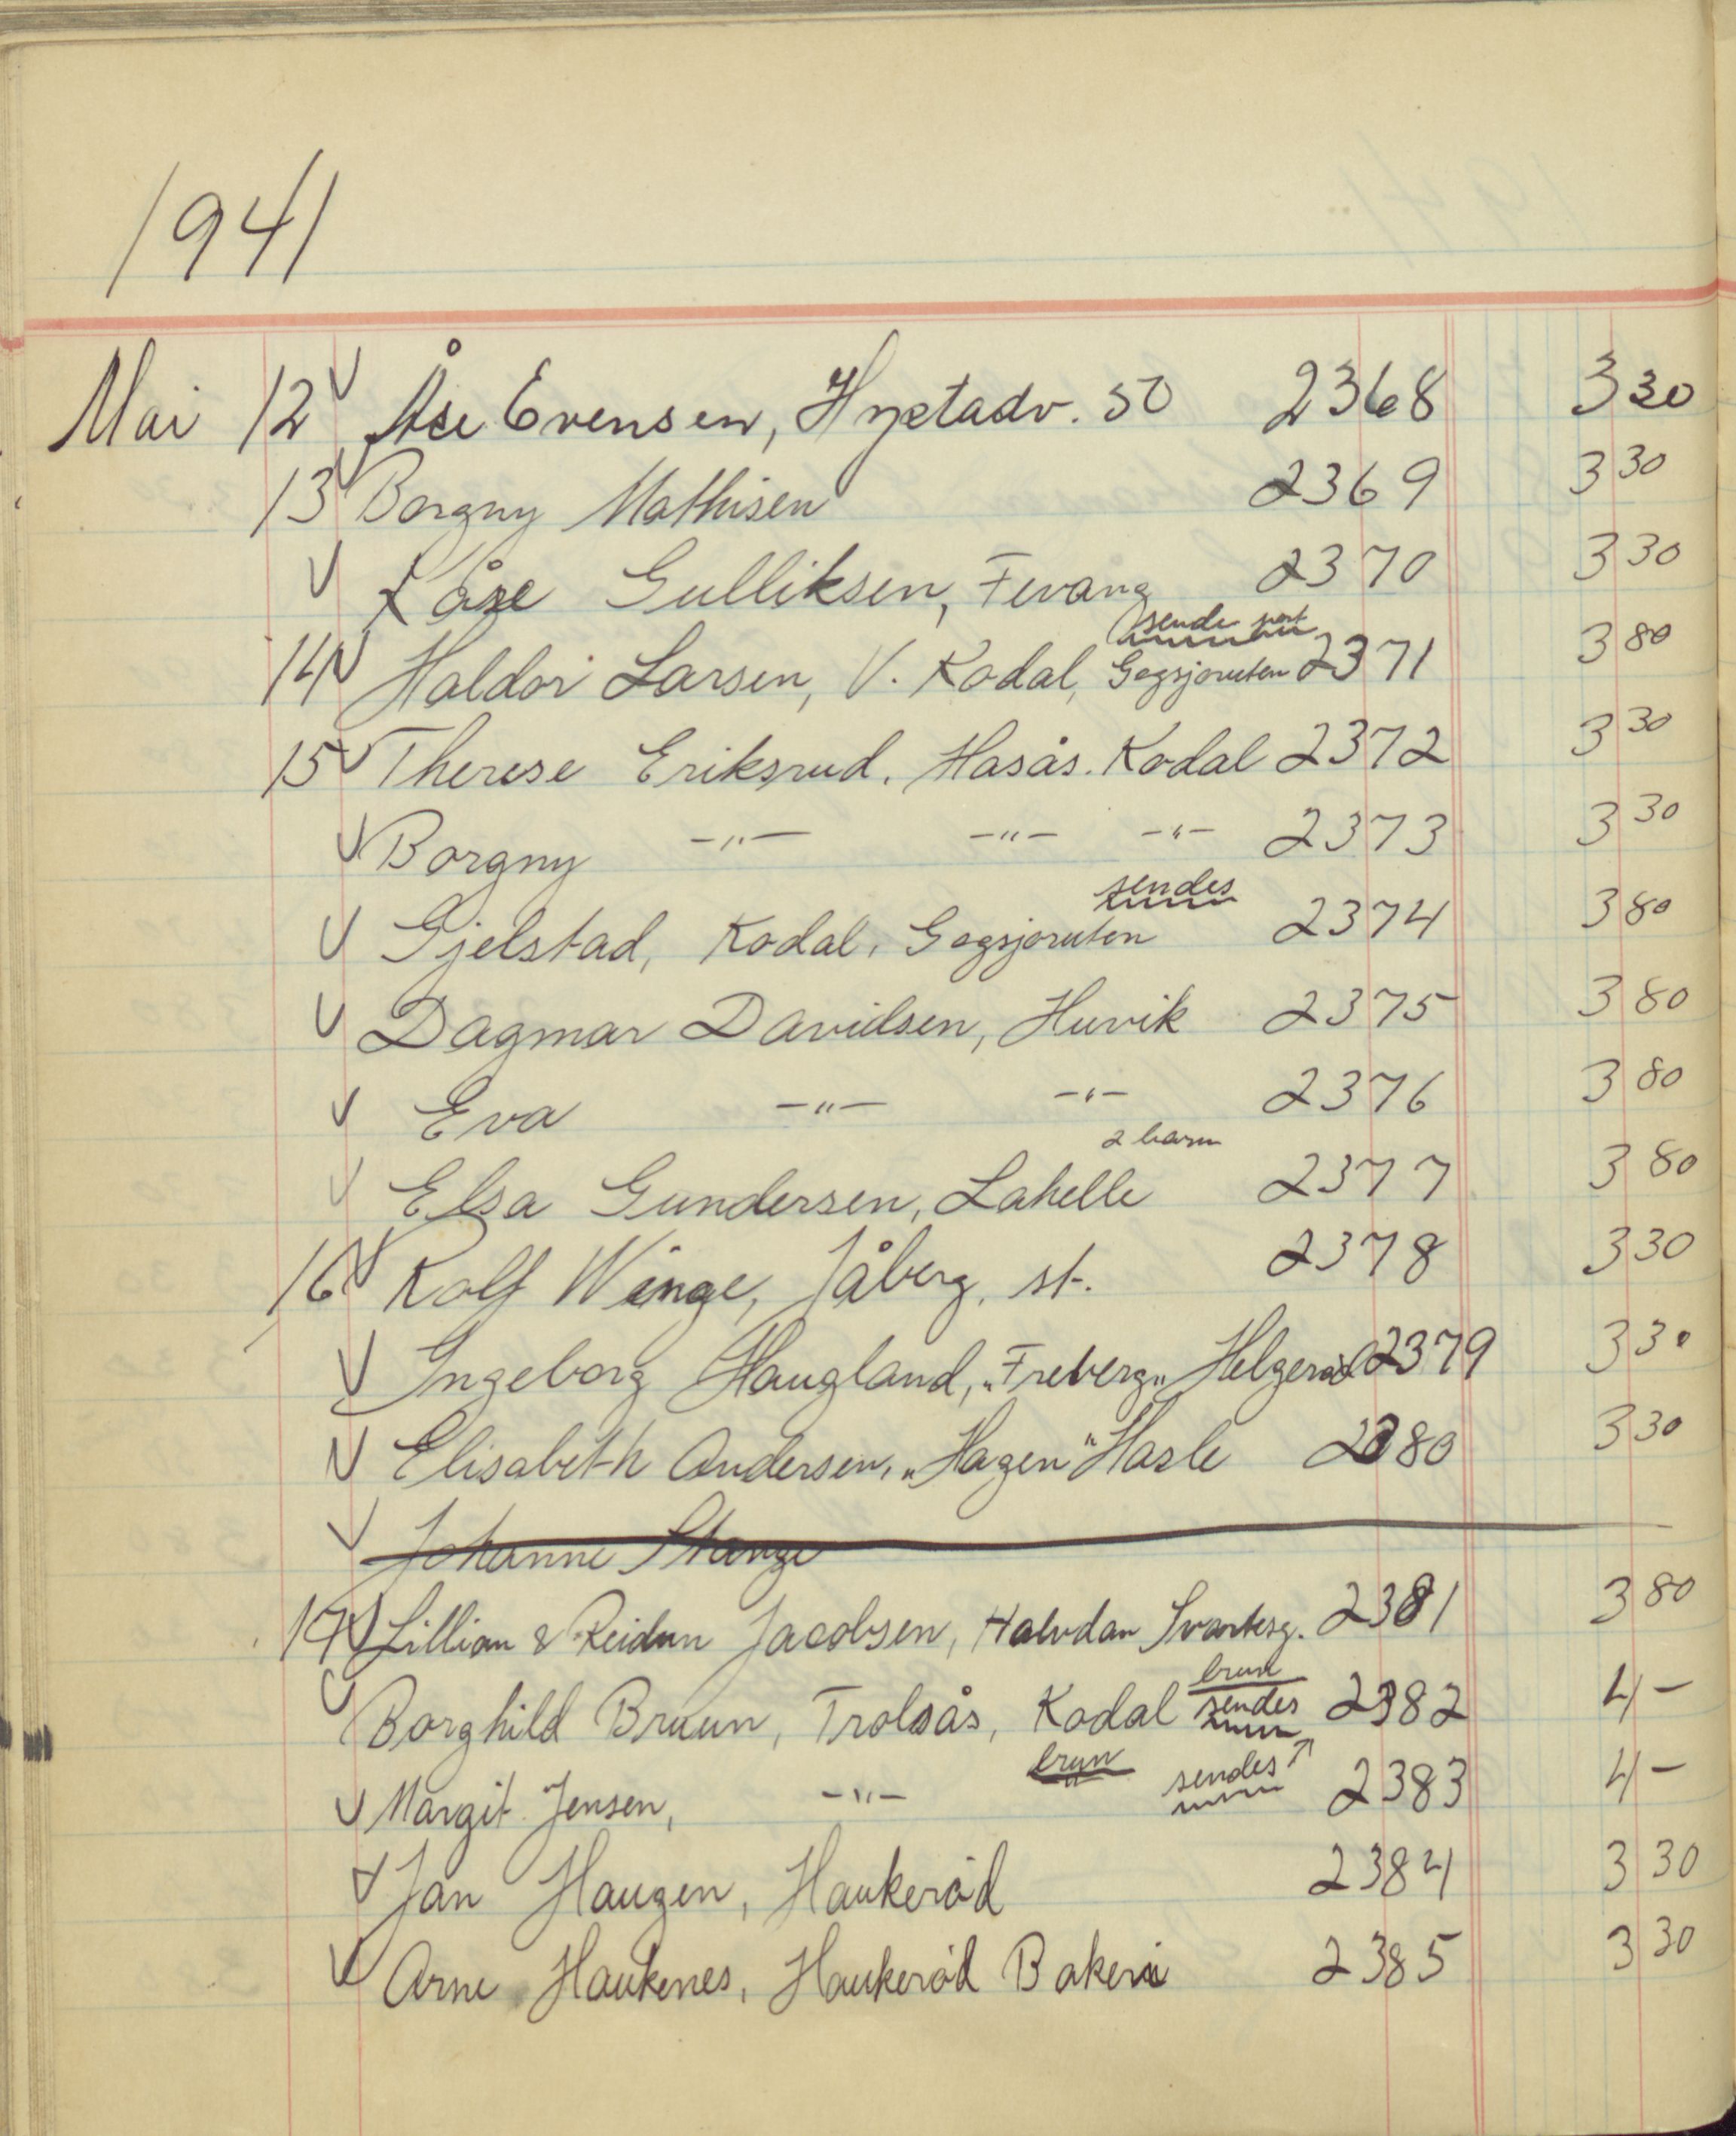 1941
Mai 12 √ Åse Evensen, Hystadv. 50 2368 3 30
13 √ Borgny Mathisen 2369 3 30
√ Kåre Gulliksen, Fevang 2370 3 30
sende post
14 √ Haldor Larsen, V. Kodal, Gogsjøruten 2371 3 80
15 √ Therese Eriksrud. Hasås. Kodal 2372 3 30
√ Borgny -"- -"- -"- 2373 3 30
sendes
√ Gjelstad, Kodal, Gogsjøruten 2374 3 80
√ Dagmar Davidsen, Huvik 2375 3 80
√ Eva -"- -"- 2376 3 80
2 barn
√ Elsa Gundersen, Lahelle 2377 3 80
16 √ Rolf Winge, Jåberg. st. 2378 3 30
√ Ingeborg Haugland, "Freberg" Helgerød 2379 3 30
√ Elisabeth Andersen, "Hagen" Hasle 2380 3 30
√ Johanne Stange
17 √ Lillian & Reidun Jacobsen, Halvdan Svartesg. 2381 3 80
brun
√ Borghild Bruun, Trolsås, Kodal sendes 2382 4 -
brun
√ Margit Jensen, -"- sendes ↑ 2383 4 -
√ Jan Haugen, Haukerød 2384 3 30
√ Arne Haukenes, Haukerød Bakeri 2385 3 30